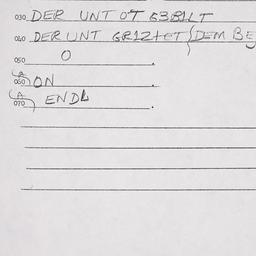 030 DER UNT OT G3BILT
040 DER UNT GRIZHET DEM BE
050 O
060 ON
070 ENDL